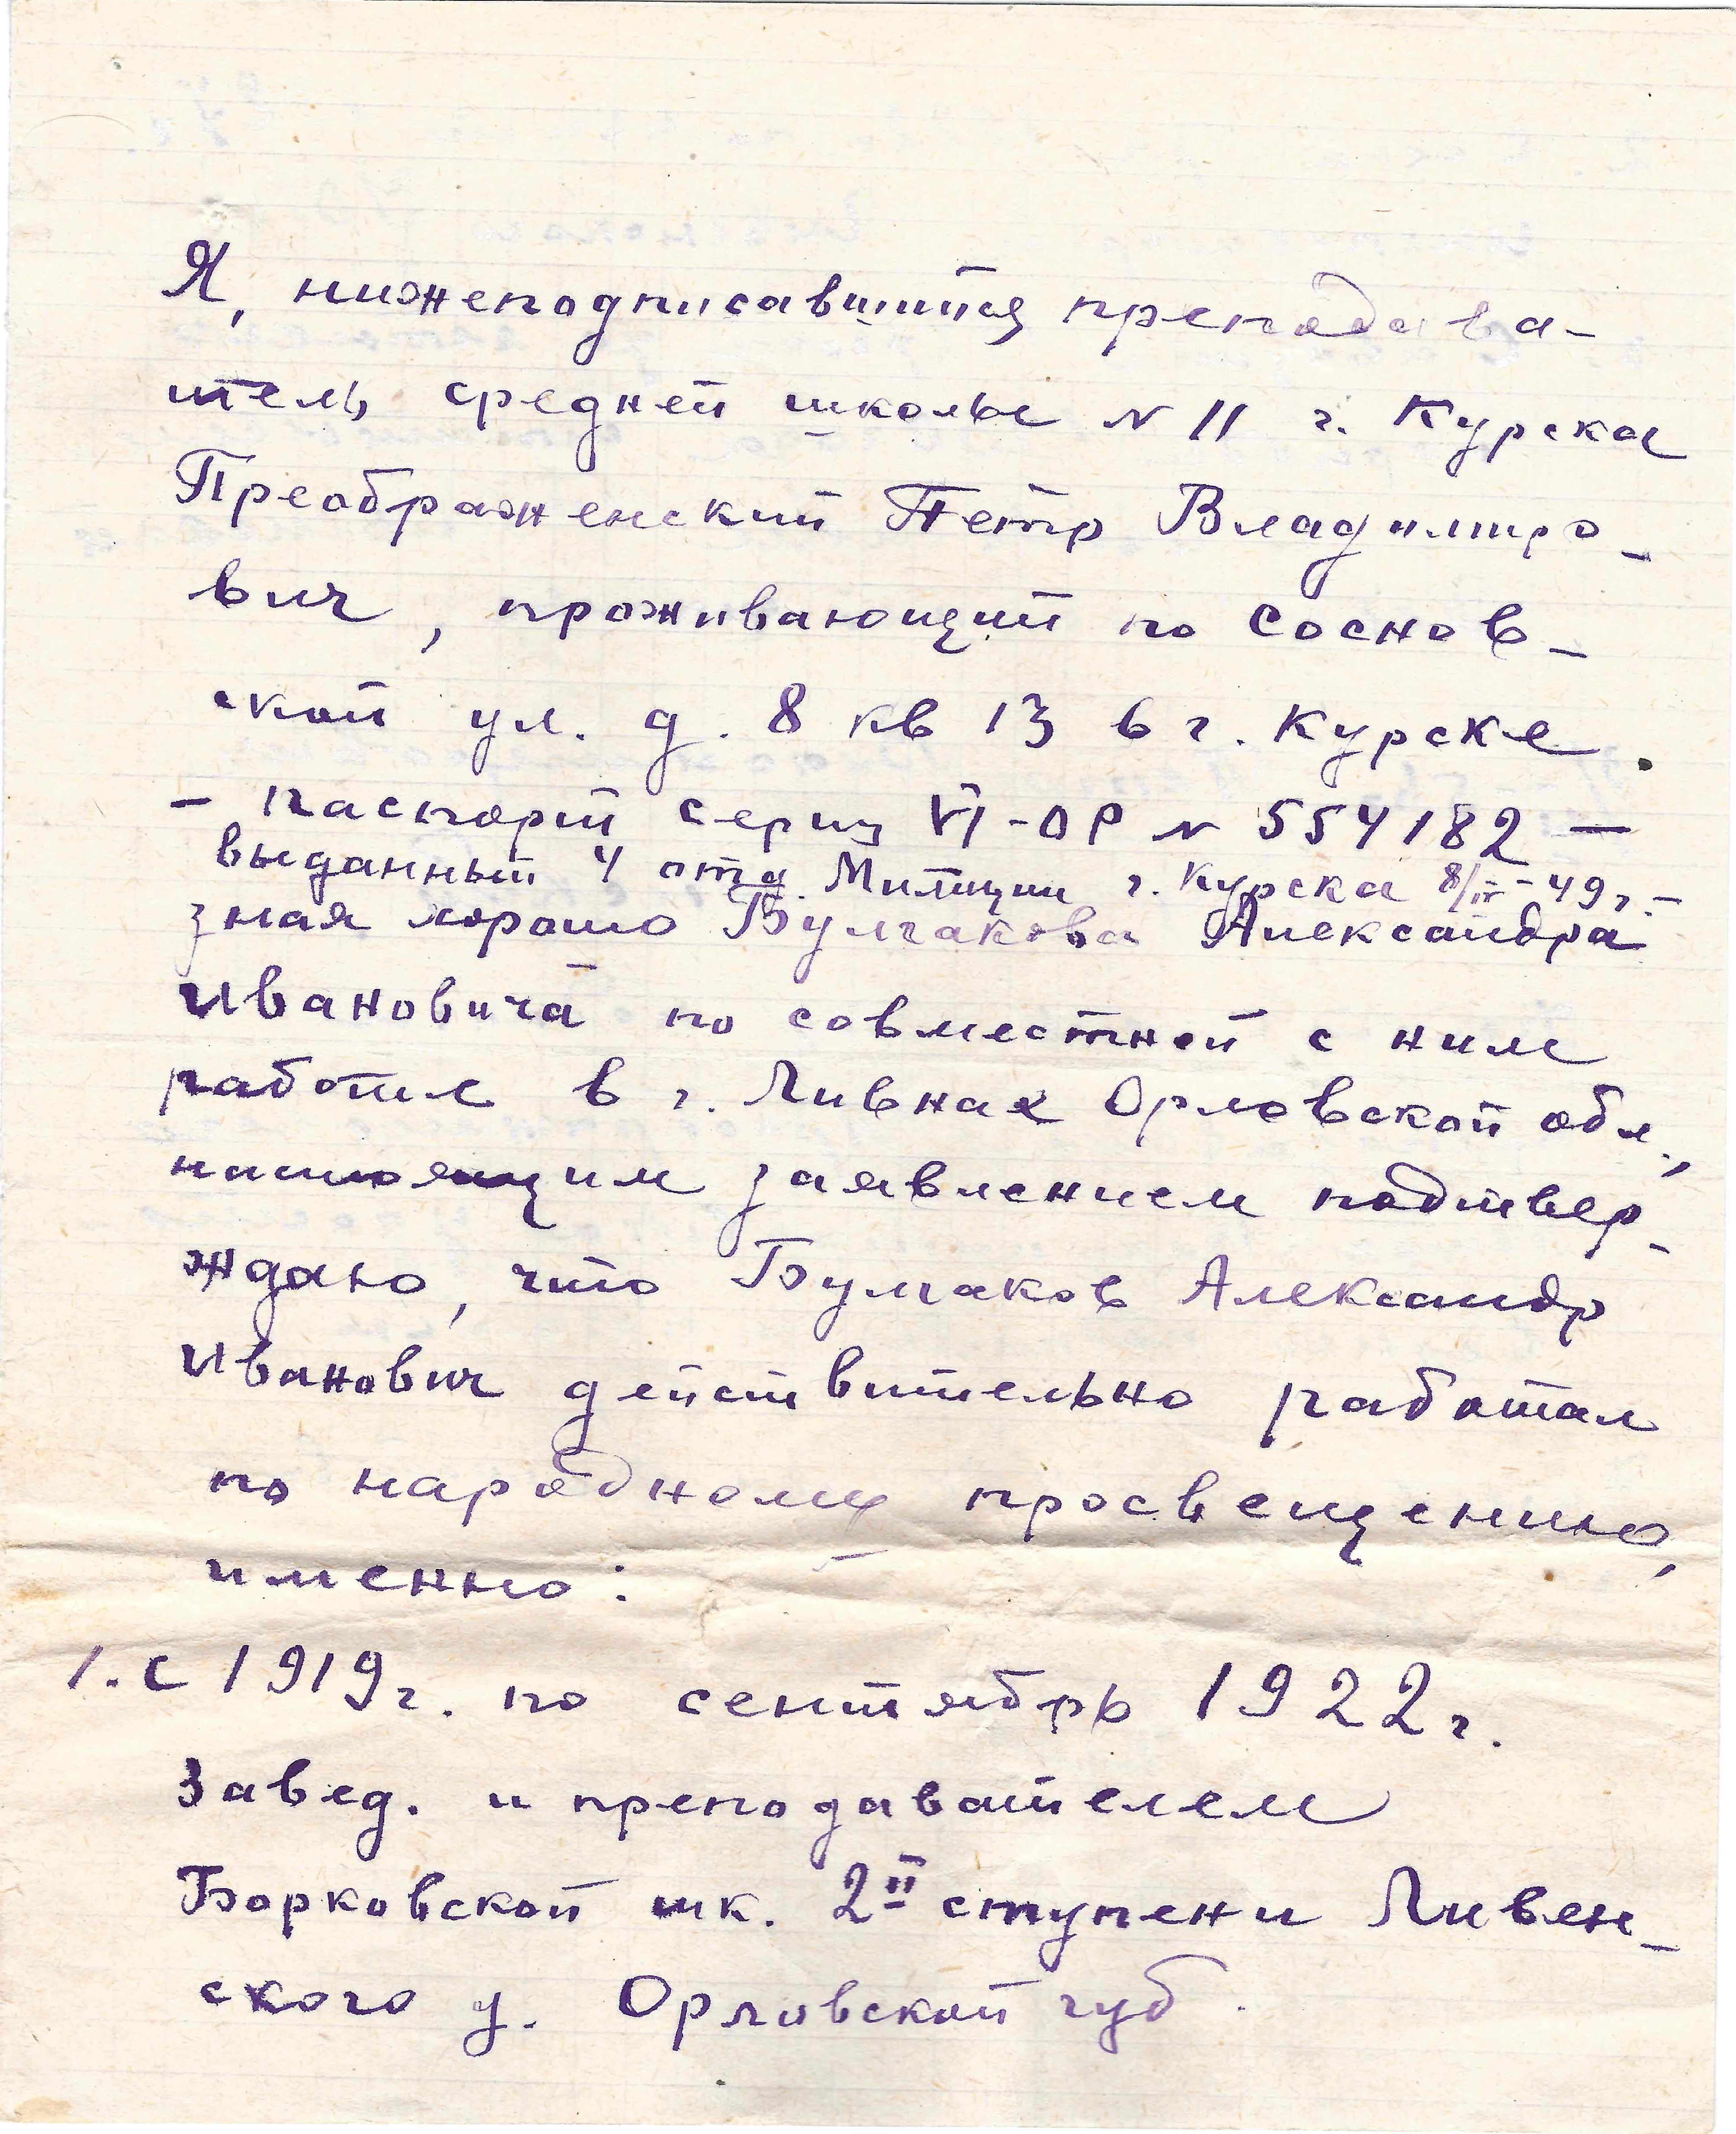 Я, нижеподписавшийся преподава-
тель средней школы N 11 г. Курска
Преображенский Петр Владимиро-
вич, проживающий по Соснов-
ской ул. д. 8 кв 13 в г. Курске.
- паспорт серии VI-ОР N 554182 -
выданный 4 отд. Милиции г. Курска 8/IV-49 г. -
зная хорошо Булгакова Александра
Ивановича по совместной с ним
работе в г. Ливнах Орловской обл.,
настоящим заявлением подтвер-
ждаю, что Булгаков Александр
Иванович действительно работал
по народному просвещению,
именно:
1. С 1919 г. по сентябрь 1922 г.
Завед. и преподавателем
Борковской шк. 2й ступени Ливен-
ского у. Орловской губ.